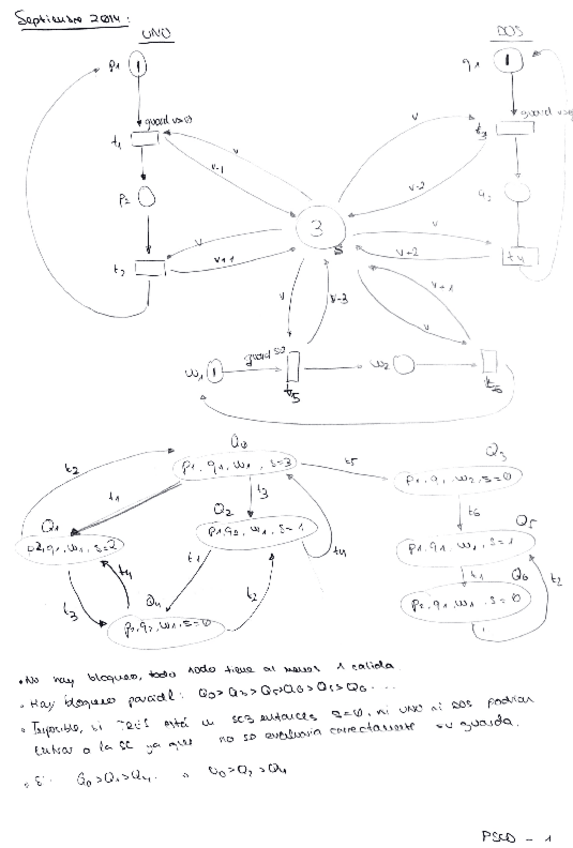 Septiembre 2014:
UNO
DOS
p1
1
q1
1
guard
t1
v
v-1
v
v-2
t3
guard
p2
3
s
q2
v
v+1
t2
v
v+2
t4
v
v-3
v+1
v
w1
1
guard
t5
w2
t6
Q0
p1, q1, w1, s=3
t2
t1
t3
t5
Q3
p1, q1, w2, s=0
t6
Q1
p2, q1, w1, s=2
Q2
p1, q2, w1, s=1
t4
Q5
p1, q1, w1, s=1
t3
t4
t1
t2
t1
Q6
p2, q1, w1, s=0
t2
Q4
p2, q2, w1, s=0
• No hay bloqueo, todo nodo tiene al menos 1 salida
• Hay bloqueo parcial: Q0>Q3>Q5>Q6>Q5>Q6 ...
• Imposible, si TRES está en SC3 entonces s=0, ni UNO ni DOS podrían
entrar a la SC ya que no se evaluaría correctamente su guarda.
• Sí: Q0>Q1>Q4. Q0>Q2>Q4
PSCD - 1